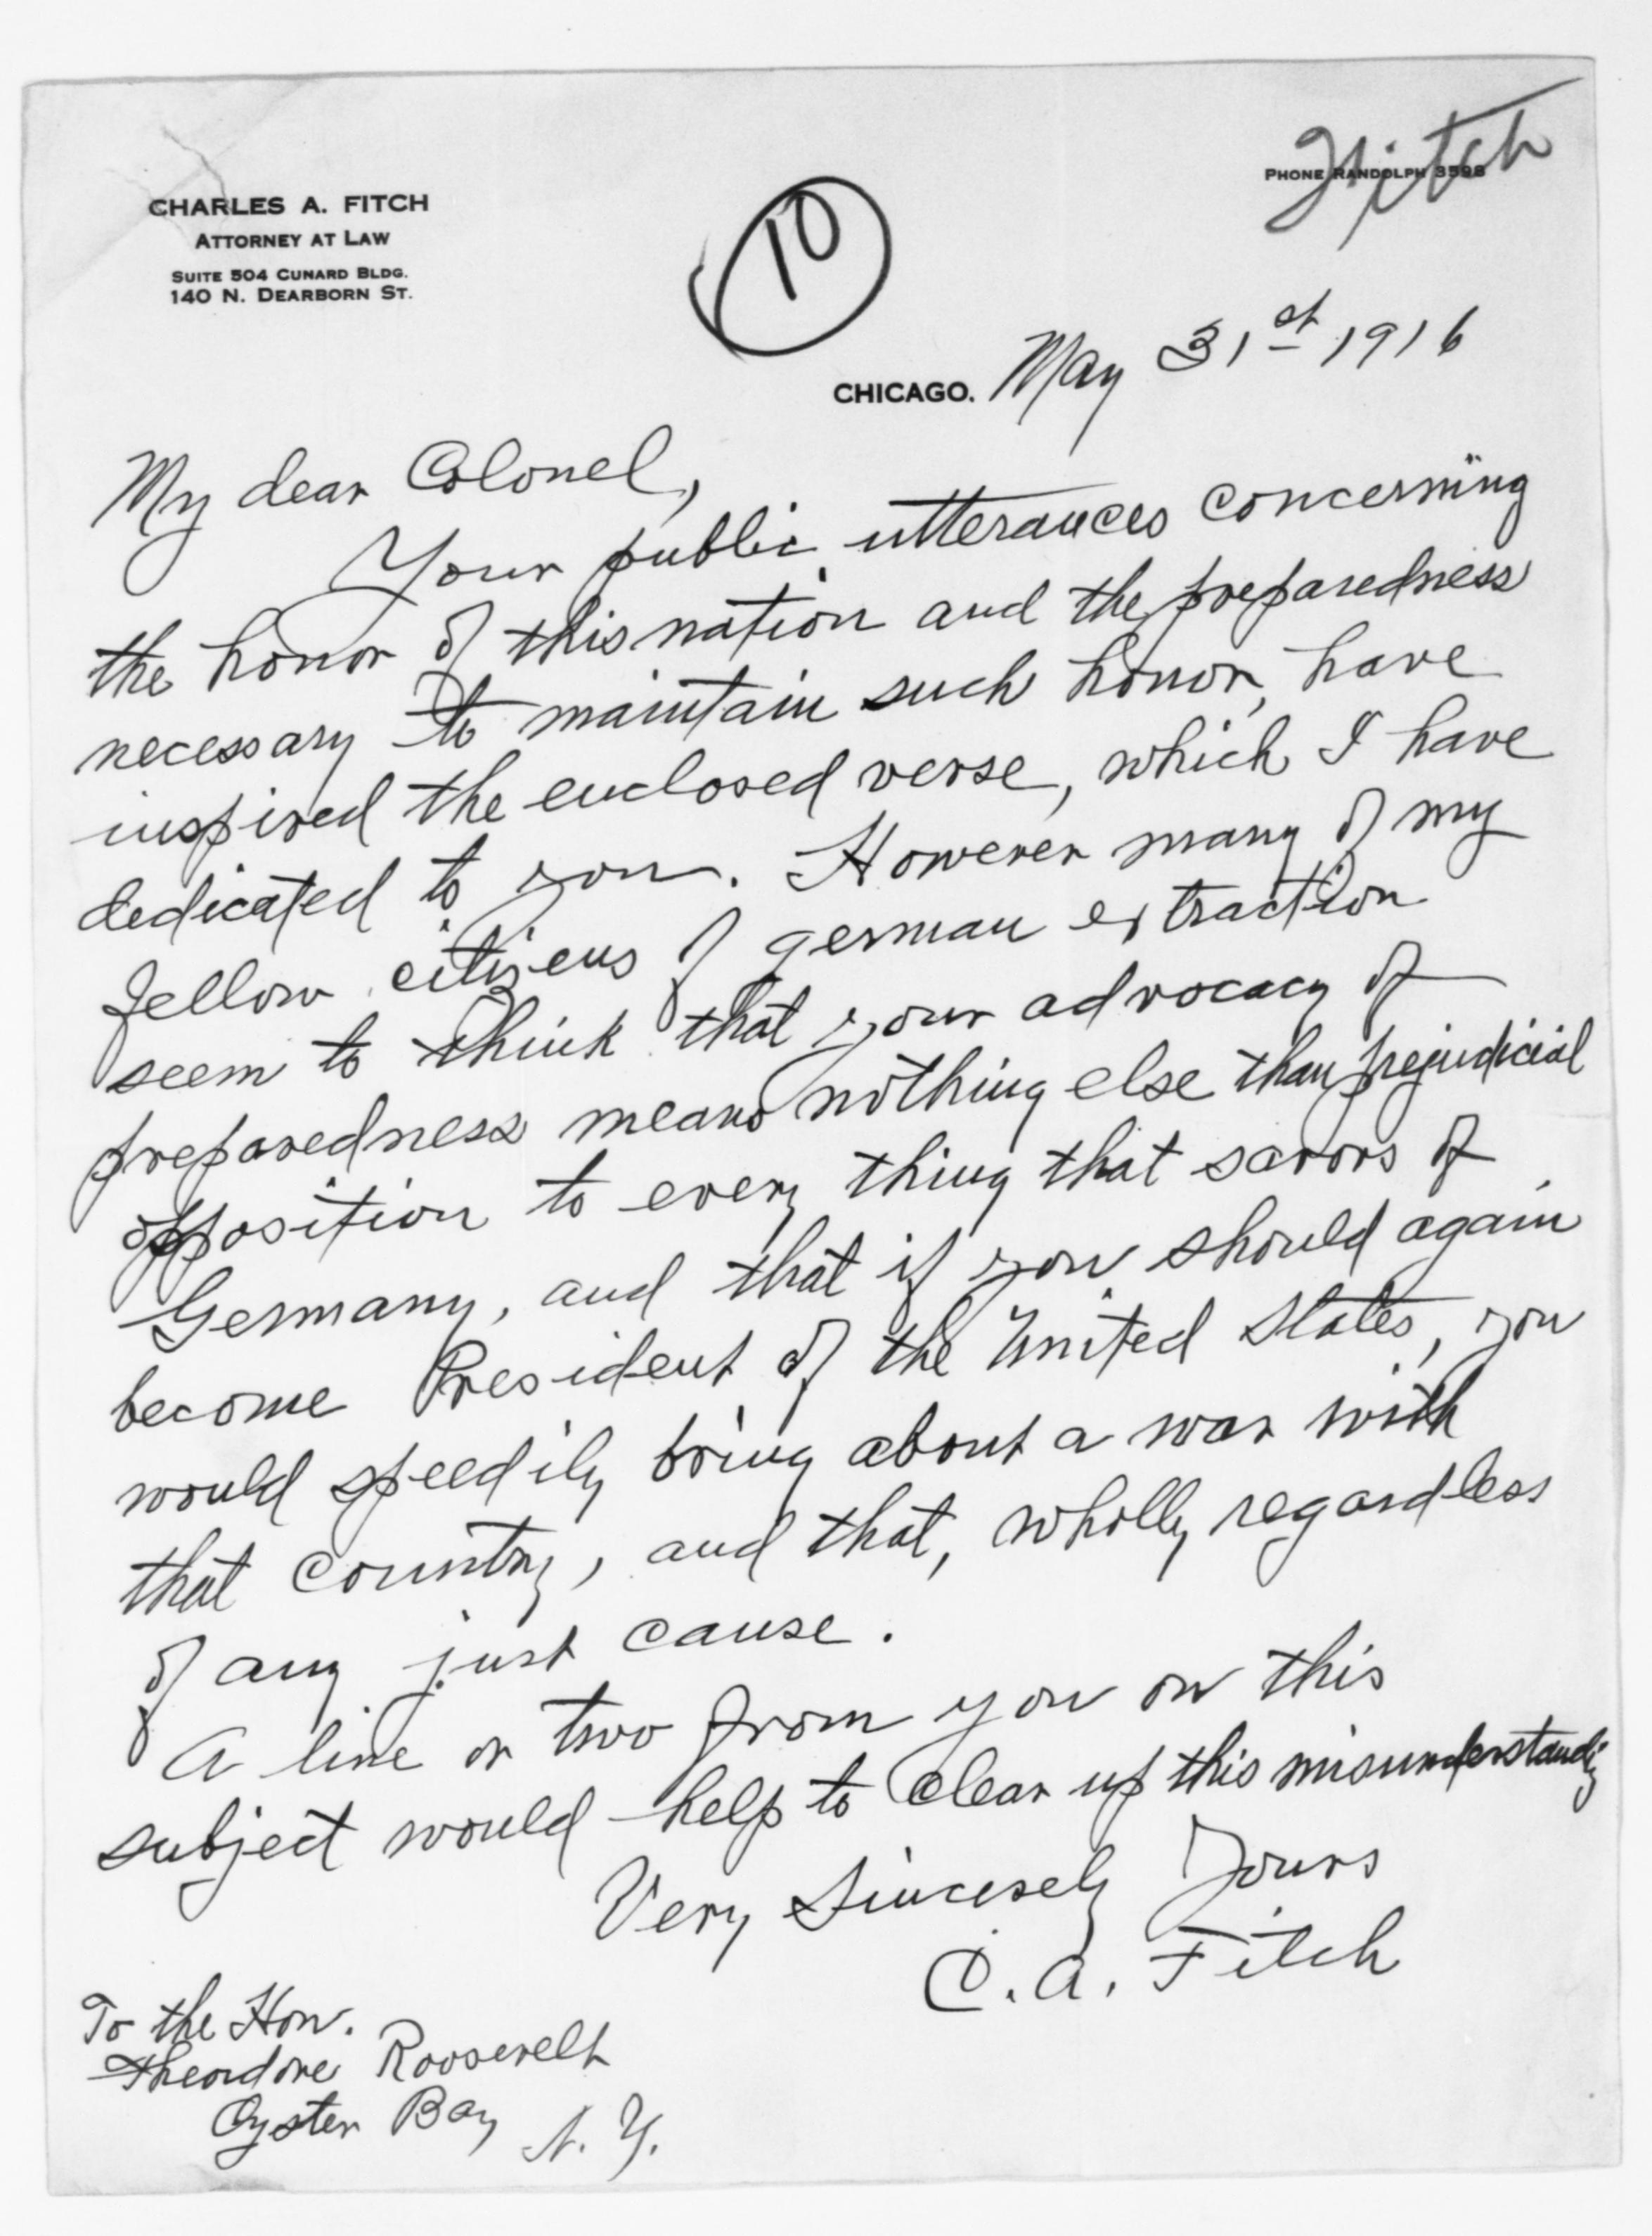 Fitch
PHONE RANDOLPH 3598
CHARLES A. FITCH
ATTORNEY AT LAW
SUITE 504 CUNARD BLDG.
140 N. DEARBORN ST.
10
CHICAGO. May 31st 1916
My dear Colonel,
Your public utterances concerning
the honor of this nation and the preparedness
necessary to maintain such honor, have
inspired the enclosed verse, which I have
dedicated to you. However many of my
fellow citizens of german extraction
seem to think that your advocacy of
preparedness means nothing else than prejudicial
opposition to every thing that savors of
Germany, and that if you should again
become President of the United States, you
would speedily bring about a war with
that country, and that, wholly regardless
of any just cause.
A line or two from you on this
subject would help to clear up this misunderstandig
Very Sincerely Yours
C. A. Fitch
To the Hon.
Theodore Roosevelt
Oyster Bay N. Y.